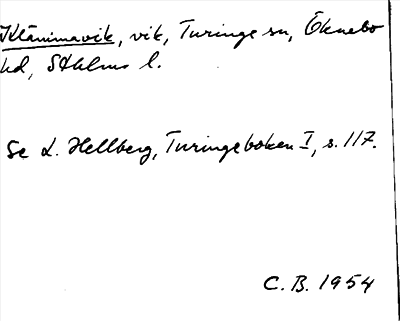 Klämmavik, vik, Turinge sn, Öknebo
hd, Sthlms l.
Se L. Hellberg, Turingeboken I, s. 117.
C. B. 1954